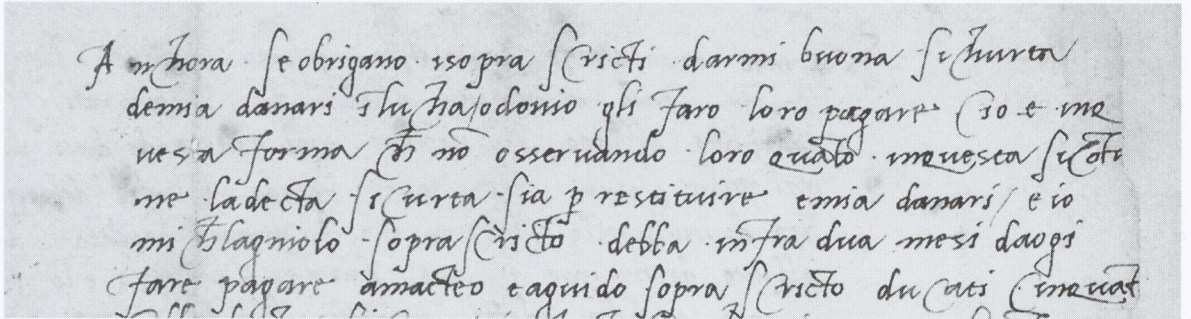 Anchora se obrigano isopra scricti darmi buona sichurta
demia danari ī luchа/o donio gli faro loro pagare cio e inq
uesta forma ch̄ nō osservando loro quāto inquesta si cōti
ne ladecta sicurta sia p restituire emia danari/ e io
mi ch̄lagniolo soprascricto debba infra dua mesi daogi
fare pagare amacteo eaguido sopra scricto ducati cinquāt